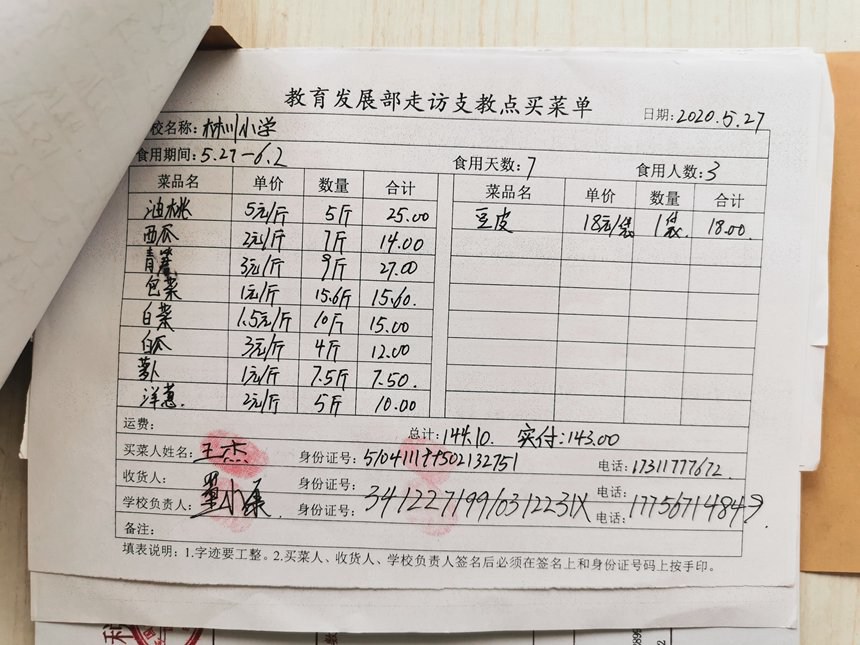 教育发展部走访支教点买菜单
日期：2020.5.27
校名称：林川小学
食用期间：5.27—6.2 食用天数：7 食用人数：3
菜品名 单价 数量 合计 菜品名 单价 数量 合计
油桃 5元/斤 5斤 25.00 豆皮 18元/袋 1袋. 18.00.
西瓜 2元/斤 7斤 14.00
青 3元/斤 9斤 27.00
包菜 1元/斤 15.6斤 15.60.
白菜 1.5元/斤 10斤 15.00
白瓜 3元/斤 4斤 12.00
萝卜 1元/斤 7.5斤 7.50.
洋葱. 2元/斤 5斤 10.00
运费： 总计：144.10. 实付：143.00
买菜人姓名：王杰 身份证号： 电话：17311777672.
收货人： 身份证号： 电话：
学校负责人： 身份证号：34122719910312231X 电话：17756714849.
备注：
填表说明：1.字迹要工整。2.买菜人、收货人、学校负责人签名后必须在签名上和身份证号码上按手印。